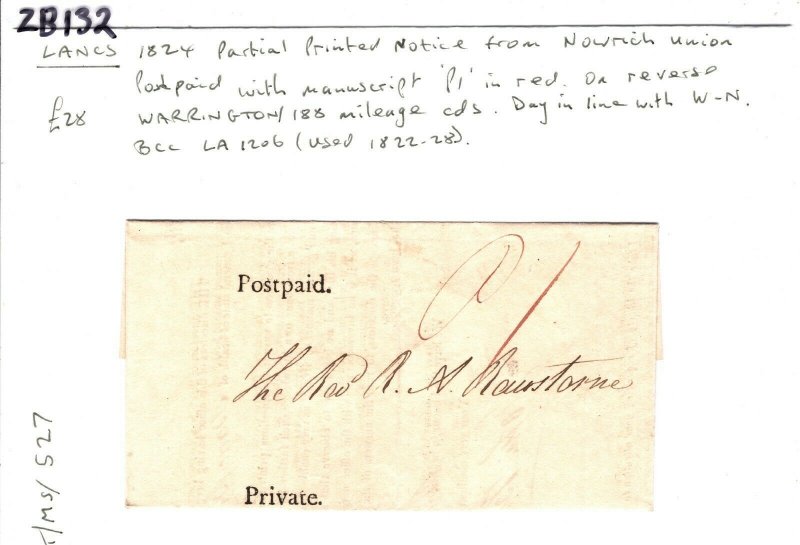 ZB132
LANCS 1824 Partial Printed Notice from Nowrich Union
Postpaid with manuscript 'P1' in red. On reverse
£28 WARRINGTON/188 mileage cds. Day in line with W-N.
BCC LA 1206 (used 1822-28).
Postpaid.
P1
The Revd R. A. Rawstorne
Private.
/MS/527